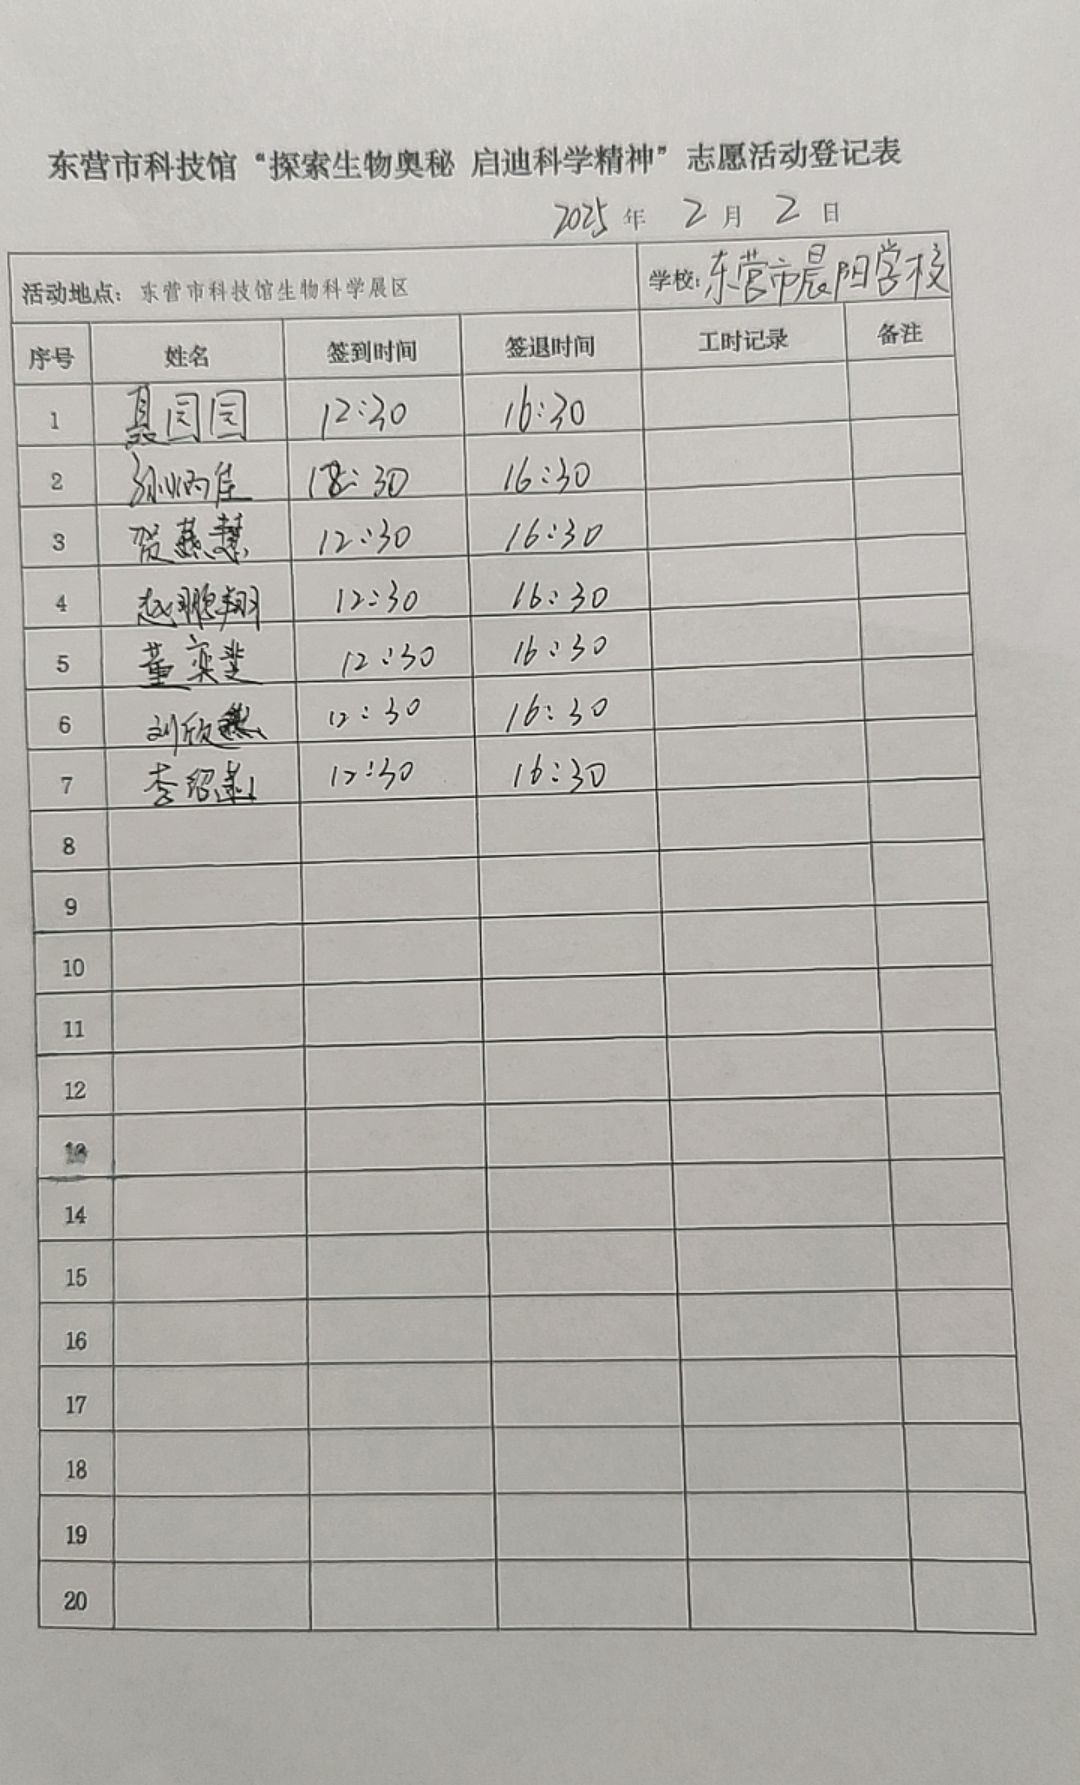 东营市科技馆“探索生物奥秘 启迪科学精神”志愿活动登记表
2025年 2月 2日
活动地点：东营市科技馆生物科学展区 学校：东营市晨阳学校
序号 姓名 签到时间 签退时间 工时记录 备注
1 聂园园 12:30 16:30
2 孙炳佳 16:30
3 贺燕慧 12:30 16:30
4 赵鹏翔 12:30 16:30
5 董奕斐 12:30 16:30
6 刘欣 12:30 16:30
7 李绍 12:30 16:30
8
9
10
11
12
13
14
15
16
17
18
19
20